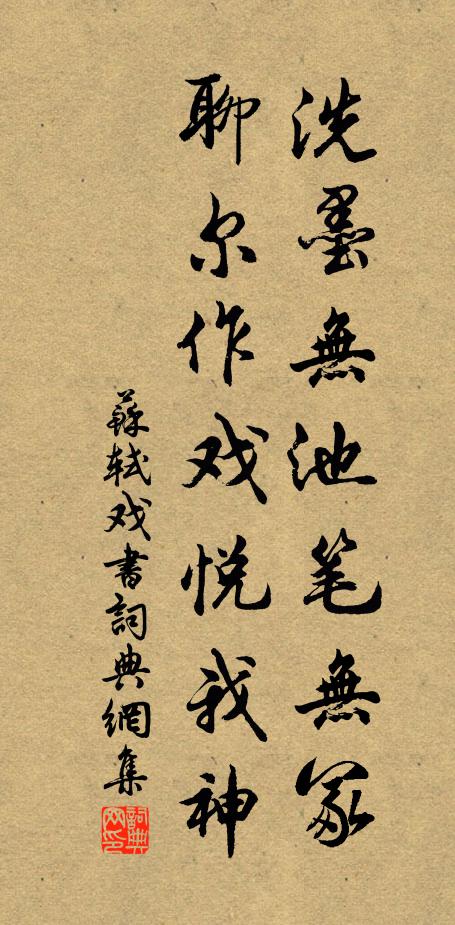 洗墨無池笔無冢
聊尔作戏悦我神
蘇軾戏書詞典網集
詞典网印